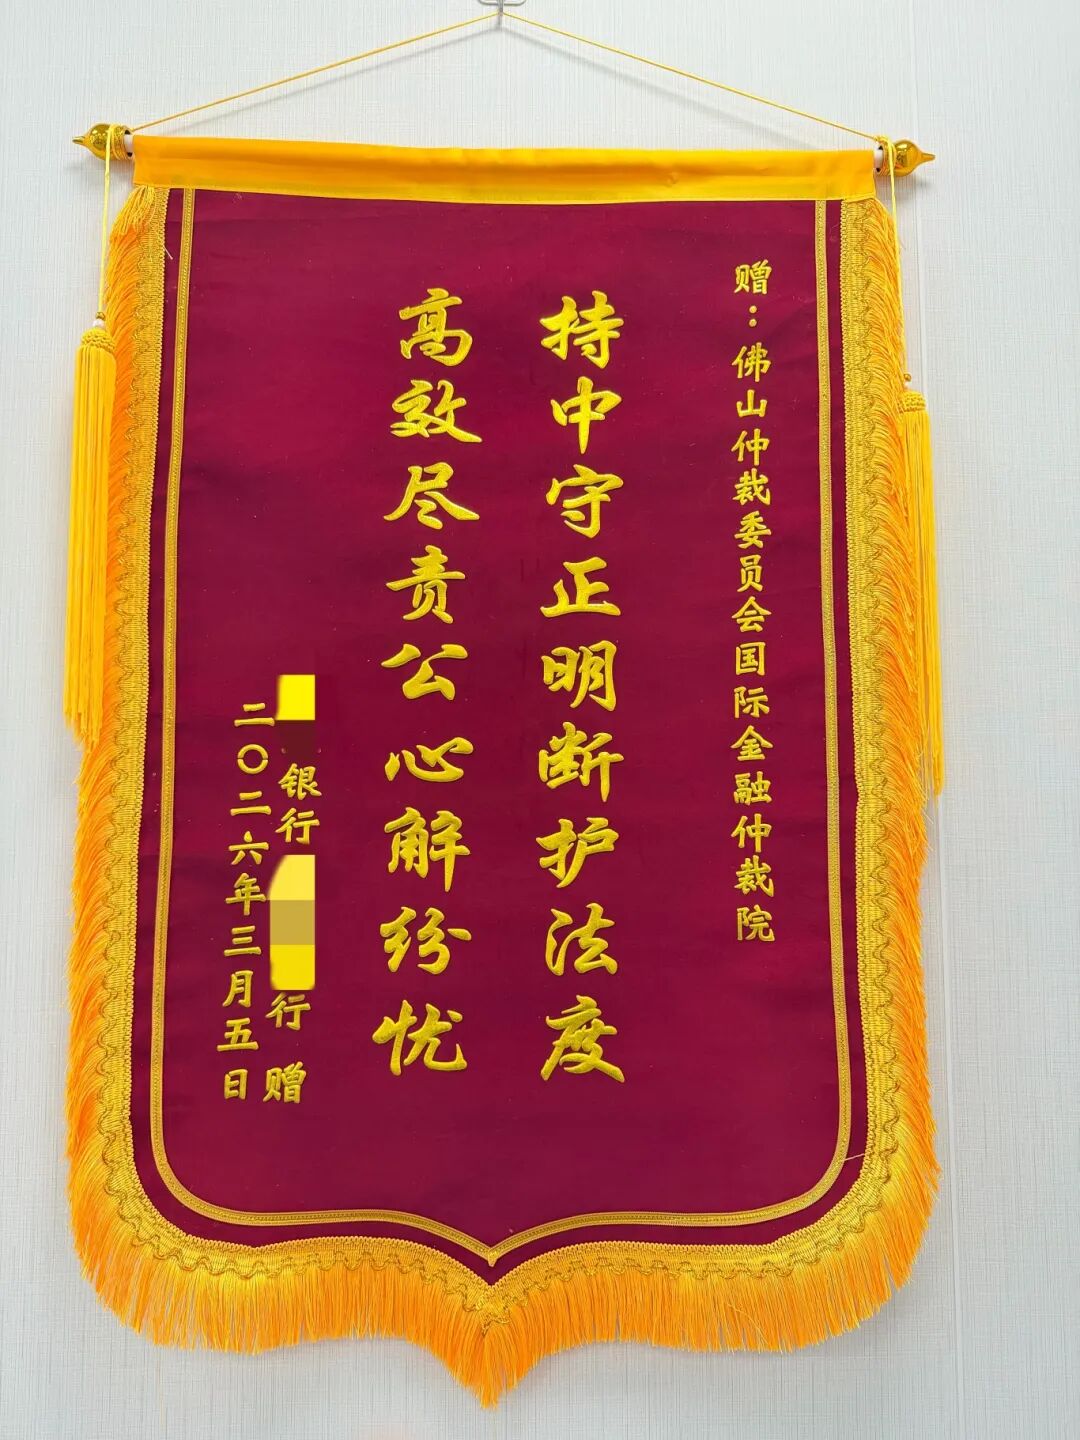 赠：佛山仲裁委员会国际金融仲裁院
持中守正明断护法度
高效尽责公心解纷忧
银行 行 赠
二〇二六年三月五日